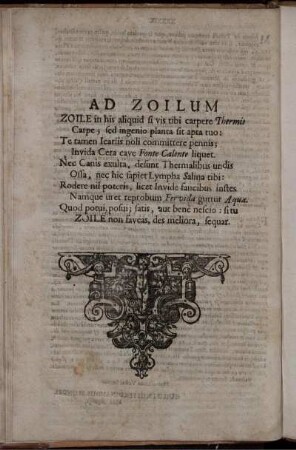 AD ZOILUM
ZOILE in his aliquid si vis tibi carpere Thermis
Carpe, sed ingenio planta sit apta tuo:
Te tamen Icariis noli committere pennis;
Invida Cera cave Fonte Calente liquet.
Nec Canis exulta, desunt Thermalibus undis
Ossa, nec hic sapiet Lympha Salina tibi:
Rodere nil poteris, licet Invide faucibus instes
Namque uret reprobum Fervida guttur Aquæ.
Quod potui, posui; satis, aut bene nescio: si tu
ZOILE non faveas, des meliora, sequar.